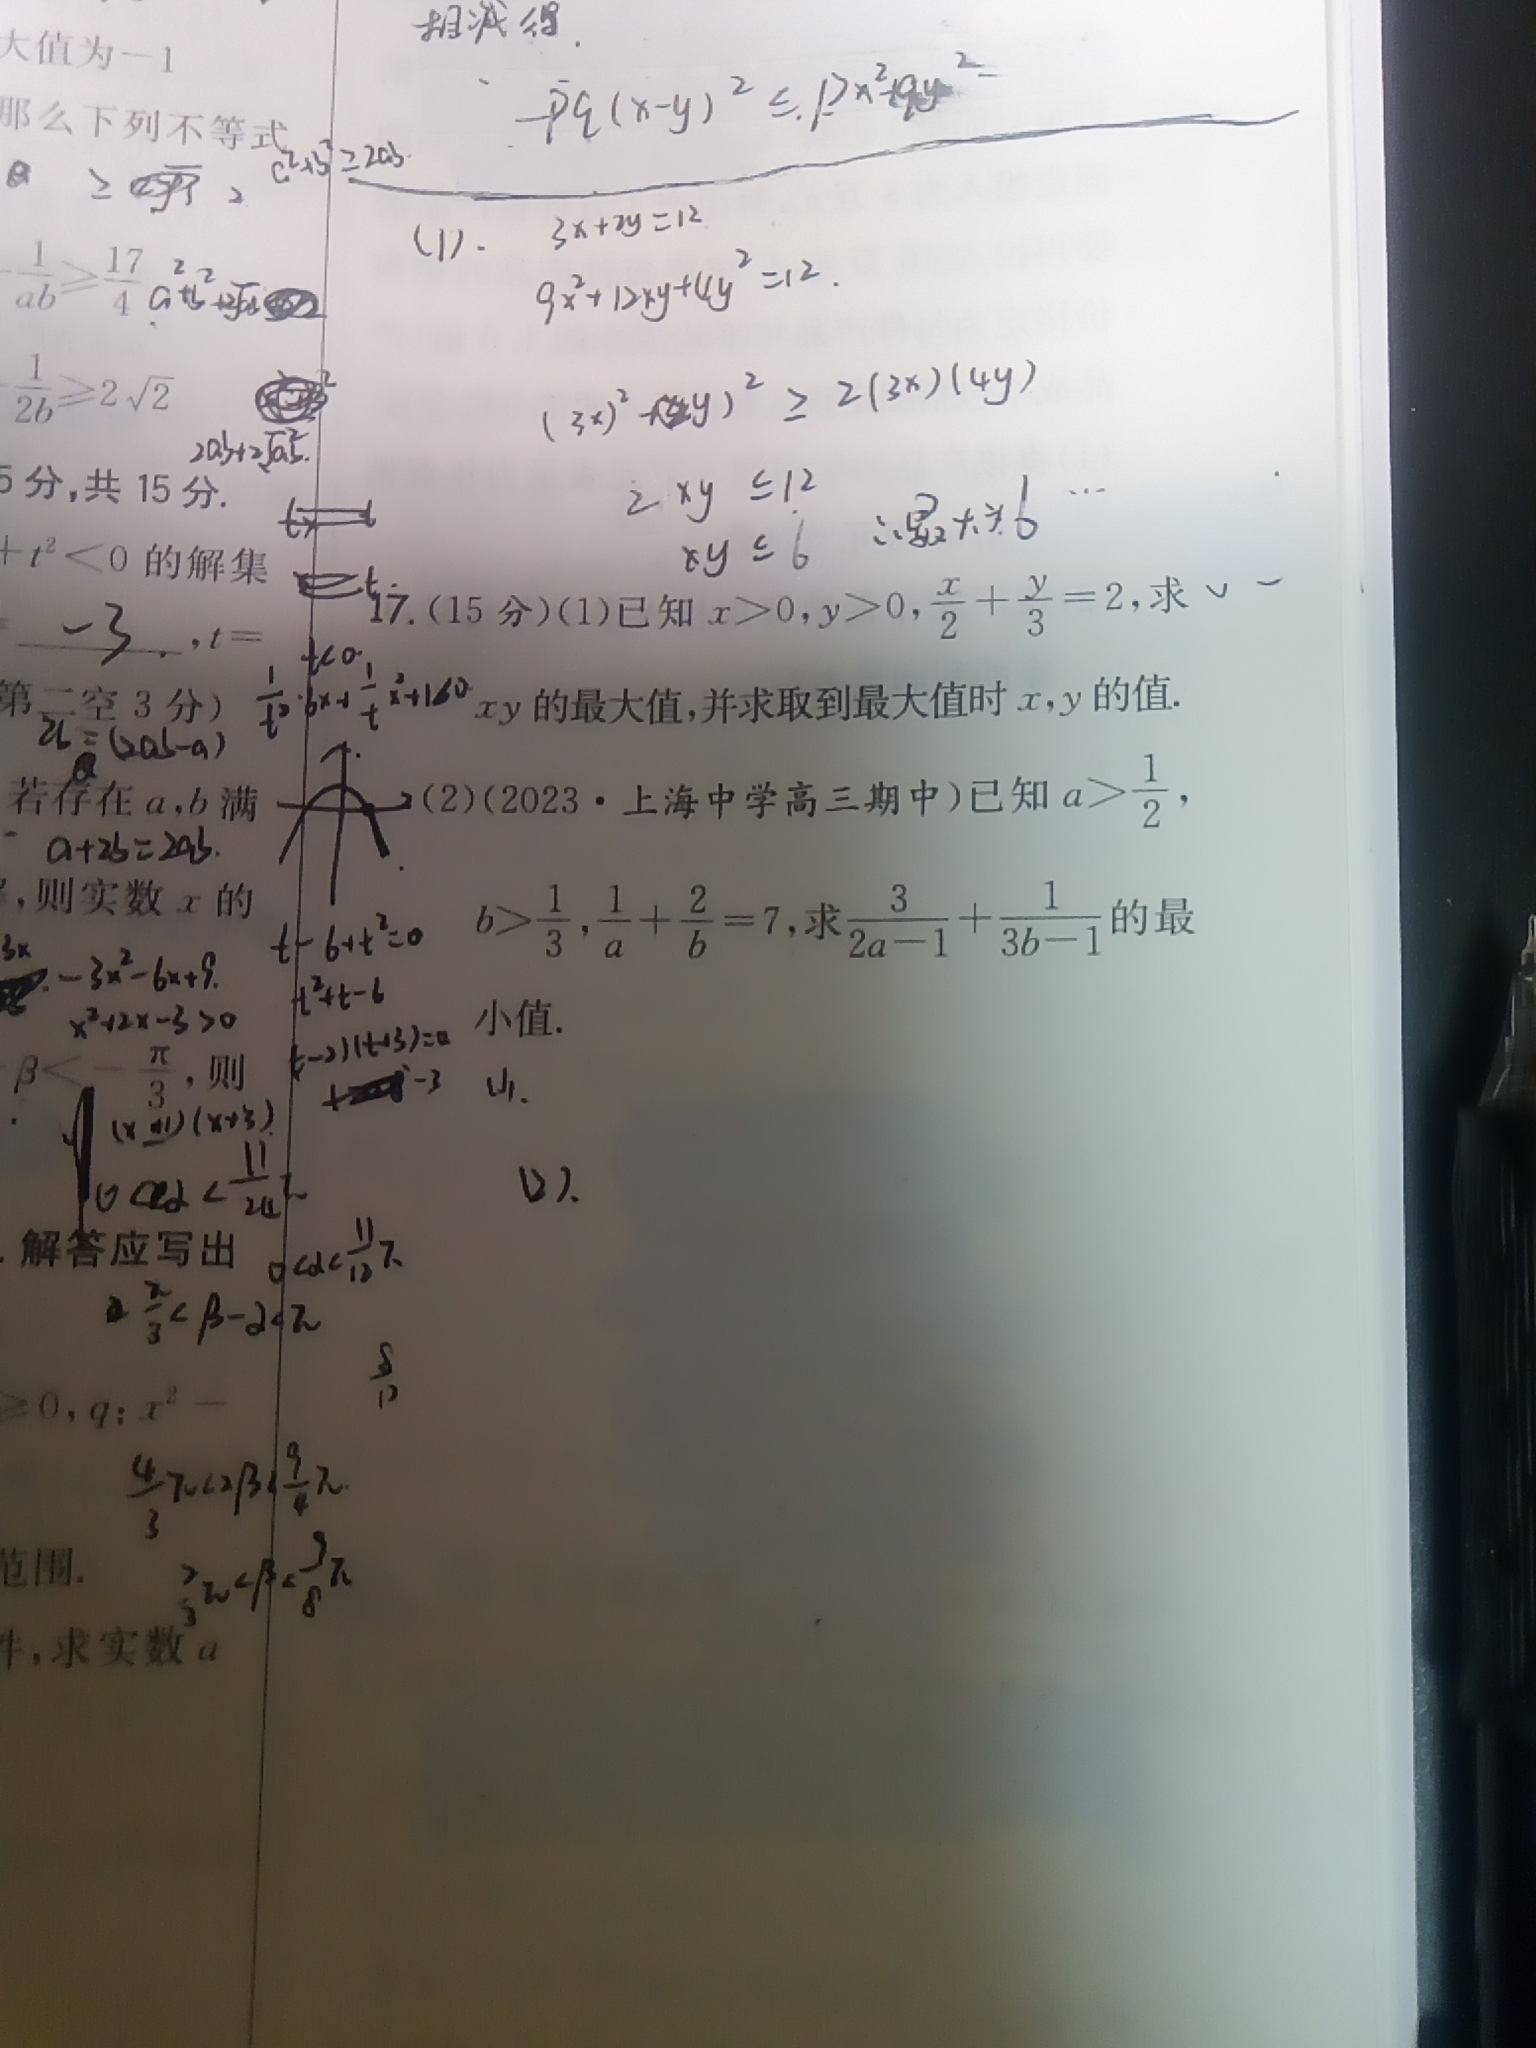 大值为-1
那么下列不等式
≥
a²+b²≥2ab.
1/ab≥17/4
1/2b≥2√2
5分,共15分.
+t²<0的解集
-3,t=
t<0
第二空3分)
2b=(2ab-a)
若存在a,b满
a+2b=2ab.
,则实数x的
-3x²-6x+9.
x²+2x-3>0
β<-π/3,则
.解答应写出
π/3<β-α<π
≥0,q:x²-
4/3π<2β<9/4π
范围.
2/3π<β<9/8π
件,求实数a
t-6+t²=0
t²+t-6
t-2)(t+3)=0
-3
0<α<11/12π
相减得.
-pq(x-y)²≤px²+qy²-
(1). 3x+2y=12
9x²+12xy+4y²=12.
(3x)²+(4y)²≥2(3x)(4y)
2xy≤12
xy≤6 ∴最大为6
17.(15分)(1)已知x>0,y>0,x/2+y/3=2,求
xy的最大值,并求取到最大值时x,y的值.
(2)(2023·上海中学高三期中)已知a>1/2,
b>1/3,1/a+2/b=7,求3/(2a-1)+1/(3b-1)的最
小值.
(1).
(2).